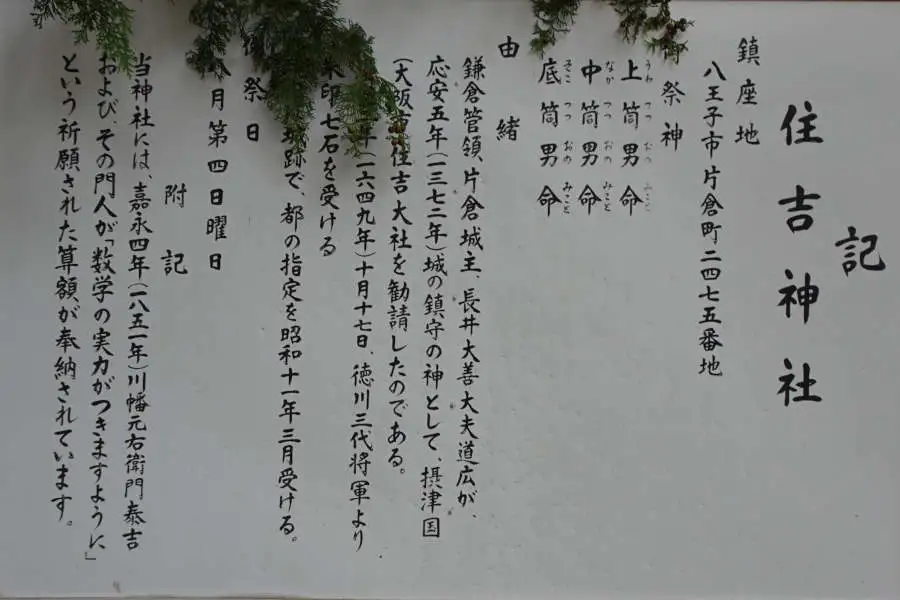 記
住吉神社
鎮座地
八王子市片倉町二四七五番地
祭神
上筒男命
うわつつおのみこと
中筒男命
なかつつおのみこと
底筒男命
そこつつおのみこと
由緒
鎌倉管領、片倉城主、長井大善大夫道広が、
応安五年(一三七二年)城の鎮守の神として、摂津国
(大阪市)住吉大社を勧請したのである。
年(一六四九年)十月十七日、徳川三代将軍より
朱印七石を受ける
城跡で、都の指定を昭和十一年三月受ける。
祭日
月第四日曜日
附記
当神社には、嘉永四年(一八五一年)川幡元右衛門泰吉
および、その門人が「数学の実力がつきますように」
という祈願された算額が奉納されています。